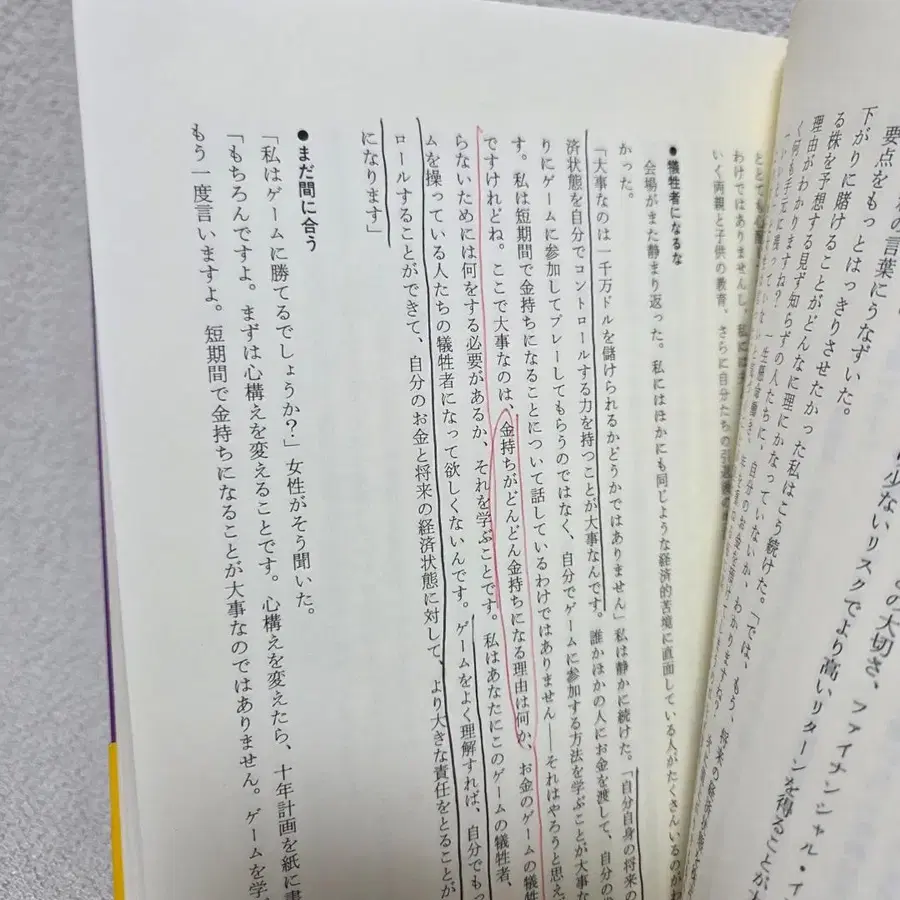 の大切さ、ファイナンシャル・イ
少ないリスクでより高いリターンを得ることが大
の言葉にうなずいた。
要点をもっとはっきりさせたかった私はこう続けた。「では、もう、将来の
下がりに賭けることがどんなに理にかなっていないか、わかりますね?
る株を予想する見ず知らずの人たちに、自分のお金を
理由がわかりますね? 一生懸命働き、
く何も手元に残っていない
わけではありませんし、私には
いく両親と子供の教育、さらに自分たちの引退後の
●犠牲者になるな
会場がまた静まり返った。私にはほかにも同じような経済的苦境に直面している人がたくさんいるのがわ
かった。
「大事なのは一千万ドルを儲けられるかどうかではありません」私は静かに続けた。「自分自身の将来の
済状態を自分でコントロールする力を持つことが大事なんです。誰かほかの人にお金を渡して、自分の
りにゲームに参加してプレーしてもらうのではなく、自分でゲームに参加する方法を学ぶことが大事な
す。私は短期間で金持ちになることについて話しているわけではありません――それはやろうと思え
ですけれどね。ここで大事なのは、金持ちがどんどん金持ちになる理由は何か、お金のゲームの犠牲
らないためには何をする必要があるか、それを学ぶことです。私はあなたにこのゲームの犠牲者、
ムを操っている人たちの犠牲者になって欲しくないんです。ゲームをよく理解すれば、自分でもっ
ロールすることができて、自分のお金と将来の経済状態に対して、より大きな責任をとることが
になります」
●まだ間に合う
「私はゲームに勝てるでしょうか?」女性がそう聞いた。
「もちろんですよ。まずは心構えを変えることです。心構えを変えたら、十年計画を紙に書
もう一度言いますよ。短期間で金持ちになることが大事なのではありません。ゲームを学